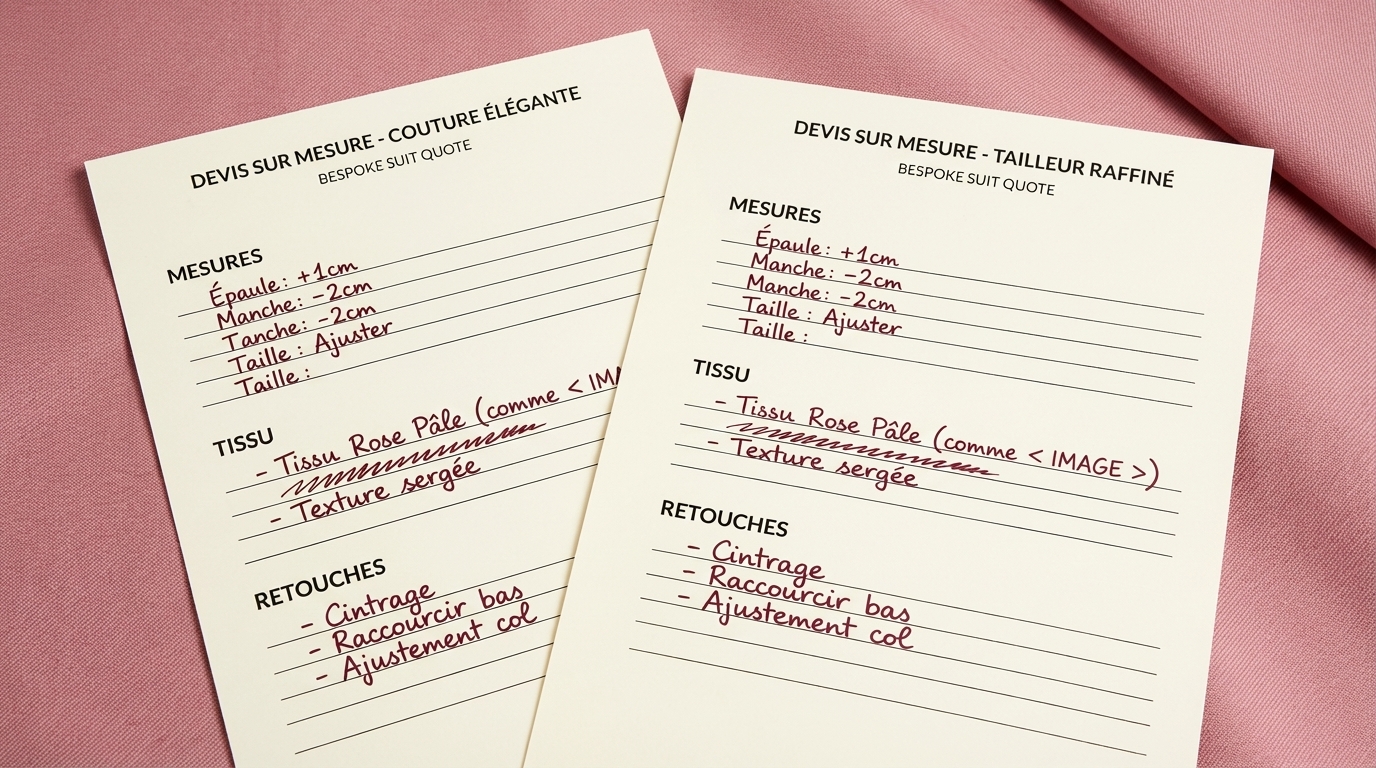 DEVIS SUR MESURE - COUTURE ÉLÉGANTE
BESPOKE SUIT QUOTE
MESURES
Épaule: +1cm
Manche: -2cm
Tanche: -2cm
Taille : Ajuster
Taille :
TISSU
- Tissu Rose Pâle (comme < IMA
- Texture sergée
RETOUCHES
- Cintrage
- Raccourcir bas
- Ajustement col
DEVIS SUR MESURE - TAILLEUR RAFFINÉ
BESPOKE SUIT QUOTE
MESURES
Épaule: +1cm
Manche: -2cm
Manche: -2cm
Taille : Ajuster
Taille :
TISSU
- Tissu Rose Pâle (comme < IMAGE >)
- Texture sergée
RETOUCHES
- Cintrage
- Raccourcir bas
- Ajustement col